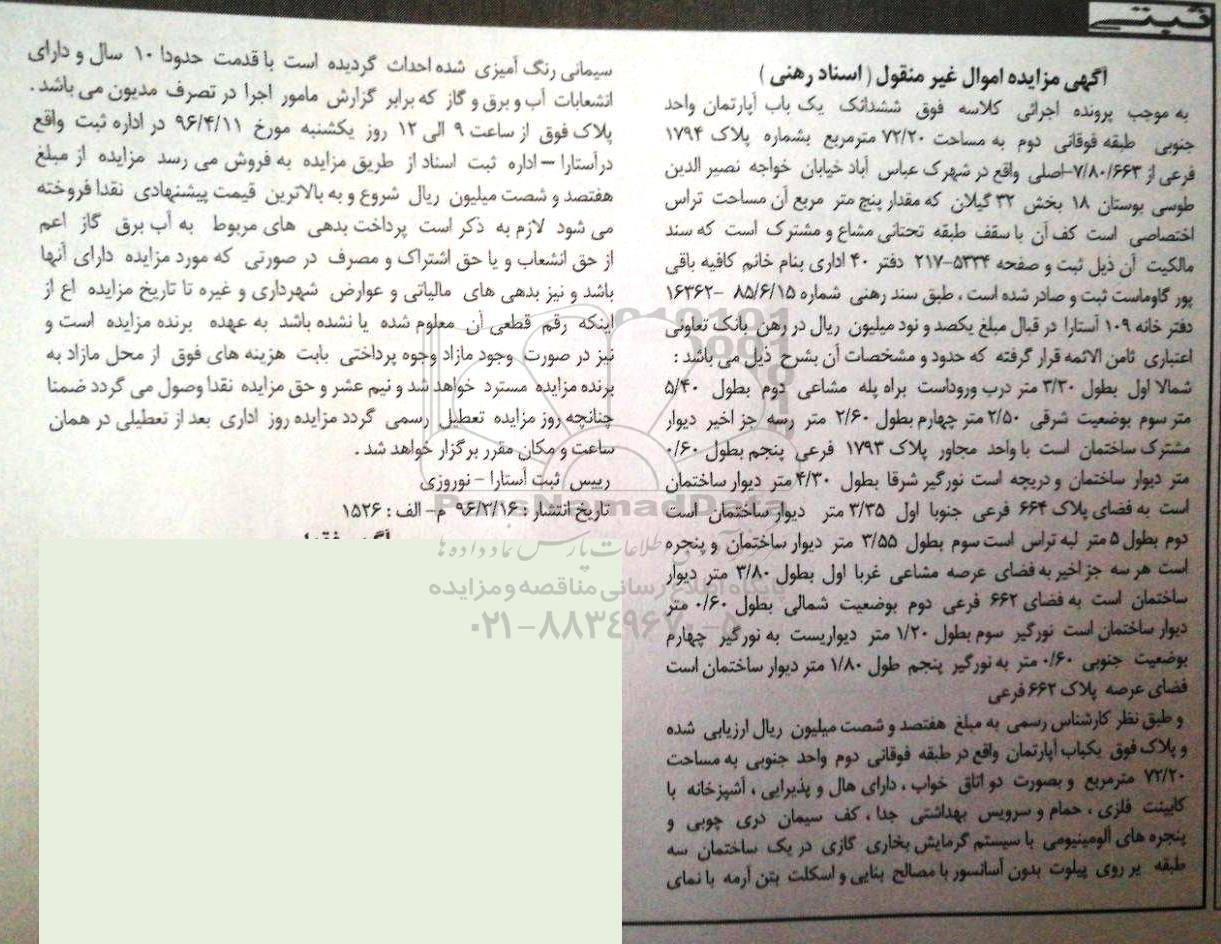 ثبتی
آگهی مزایده اموال غیر منقول ( اسناد رهنی )
به موجب پرونده اجرائی کلاسه فوق ششدانگ یک باب آپارتمان واحد
جنوبی طبقه فوقانی دوم به مساحت ۷۲/۲۰ مترمربع بشماره پلاک ۱۷۹۴
فرعی از ۷/۸۰/۶۶۳-اصلی واقع در شهرک عباس آباد خیابان خواجه نصیر الدین
طوسی بوستان ۱۸ بخش ۳۲ گیلان که مقدار پنج متر مربع آن مساحت تراس
اختصاصی است کف آن با سقف طبقه تحتانی مشاع و مشترک است که سند
مالکیت آن ذیل ثبت و صفحه ۵۳۳۴-۲۱۷ دفتر ۴۰ اداری بنام خانم کافیه باقی
پور گاوماست ثبت و صادر شده است ، طبق سند رهنی شماره ۸۵/۶/۱۵ –۱۶۳۶۲
دفتر خانه ۱۰۹ آستارا در قبال مبلغ یکصد و نود میلیون ریال در رهن بانک تعاونی
اعتباری ثامن الائمه قرار گرفته که حدود و مشخصات آن بشرح ذیل می باشد :
شمالا اول بطول ۳/۳۰ متر درب وروداست براه پله مشاعی دوم بطول ۵/۴۰
متر سوم بوضعیت شرقی ۲/۵۰ متر چهارم بطول ۲/۶۰ متر رسه جز اخیر دیوار
مشترک ساختمان است با واحد مجاور پلاک ۱۷۹۳ فرعی پنجم بطول ۰/۶۰
متر دیوار ساختمان و دریچه است نورگیر شرقا بطول ۴/۳۰ متر دیوار ساختمان
است به فضای پلاک ۶۶۴ فرعی جنوبا اول ۳/۳۵ متر دیوار ساختمان است
دوم بطول ۵ متر لبه تراس است سوم بطول ۳/۵۵ متر دیوار ساختمان و پنجره
است هر سه جز اخیر به فضای عرصه مشاعی غربا اول بطول ۳/۸۰ متر دیوار
ساختمان است به فضای ۶۶۲ فرعی دوم بوضعیت شمالی بطول ۰/۶۰ متر
دیوار ساختمان است نورگیر سوم بطول ۱/۲۰ متر دیواریست به نورگیر چهارم
بوضعیت جنوبی ۰/۶۰ متر به نورگیر پنجم طول ۱/۸۰ متر دیوار ساختمان است
فضای عرصه پلاک ۶۶۲ فرعی
و طبق نظر کارشناس رسمی به مبلغ هفتصد و شصت میلیون ریال ارزیابی شده
و پلاک فوق یکباب آپارتمان واقع در طبقه فوقانی دوم واحد جنوبی به مساحت
۷۲/۲۰ مترمربع و بصورت دو اتاق خواب ، دارای هال و پذیرایی ، آشپزخانه با
کابینت فلزی ، حمام و سرویس بهداشتی جدا ، کف سیمان دری چوبی و
پنجره های آلومینیومی با سیستم گرمایش بخاری گازی در یک ساختمان سه
طبقه بر روی پیلوت بدون آسانسور با مصالح بنایی و اسکلت بتن آرمه با نمای
سیمانی رنگ آمیزی شده احداث گردیده است با قدمت حدودا ۱۰ سال و دارای
انشعابات آب و برق و گاز که برابر گزارش مامور اجرا در تصرف مدیون می باشد .
پلاک فوق از ساعت ۹ الی ۱۲ روز یکشنبه مورخ ۹۶/۴/۱۱ در اداره ثبت واقع
درآستارا – اداره ثبت اسناد از طریق مزایده به فروش می رسد مزایده از مبلغ
هفتصد و شصت میلیون ریال شروع و به بالاترین قیمت پیشنهادی نقدا فروخته
می شود لازم به ذکر است پرداخت بدهی های مربوط به آب برق گاز اعم
از حق انشعاب و یا حق اشتراک و مصرف در صورتی که مورد مزایده دارای آنها
باشد و نیز بدهی های مالیاتی و عوارض شهرداری و غیره تا تاریخ مزایده اع از
اینکه رقم قطعی آن معلوم شده یا نشده باشد به عهده برنده مزایده است و
نیز در صورت وجود مازاد وجوه پرداختی بابت هزینه های فوق از محل مازاد به
برنده مزایده مسترد خواهد شد و نیم عشر و حق مزایده نقدا وصول می گردد ضمنا
چنانچه روز مزایده تعطیل رسمی گردد مزایده روز اداری بعد از تعطیلی در همان
ساعت و مکان مقرر برگزار خواهد شد .
رییس ثبت آستارا - نوروزی
تاریخ انتشار : ۹۶/۳/۱۶ م- الف : ۱۵۲۶
ParsNamadData
پایگاه اطلاع رسانی مناقصه و مزایده
۰۲۱-۸۸۳۴۹۶۷۰-۵